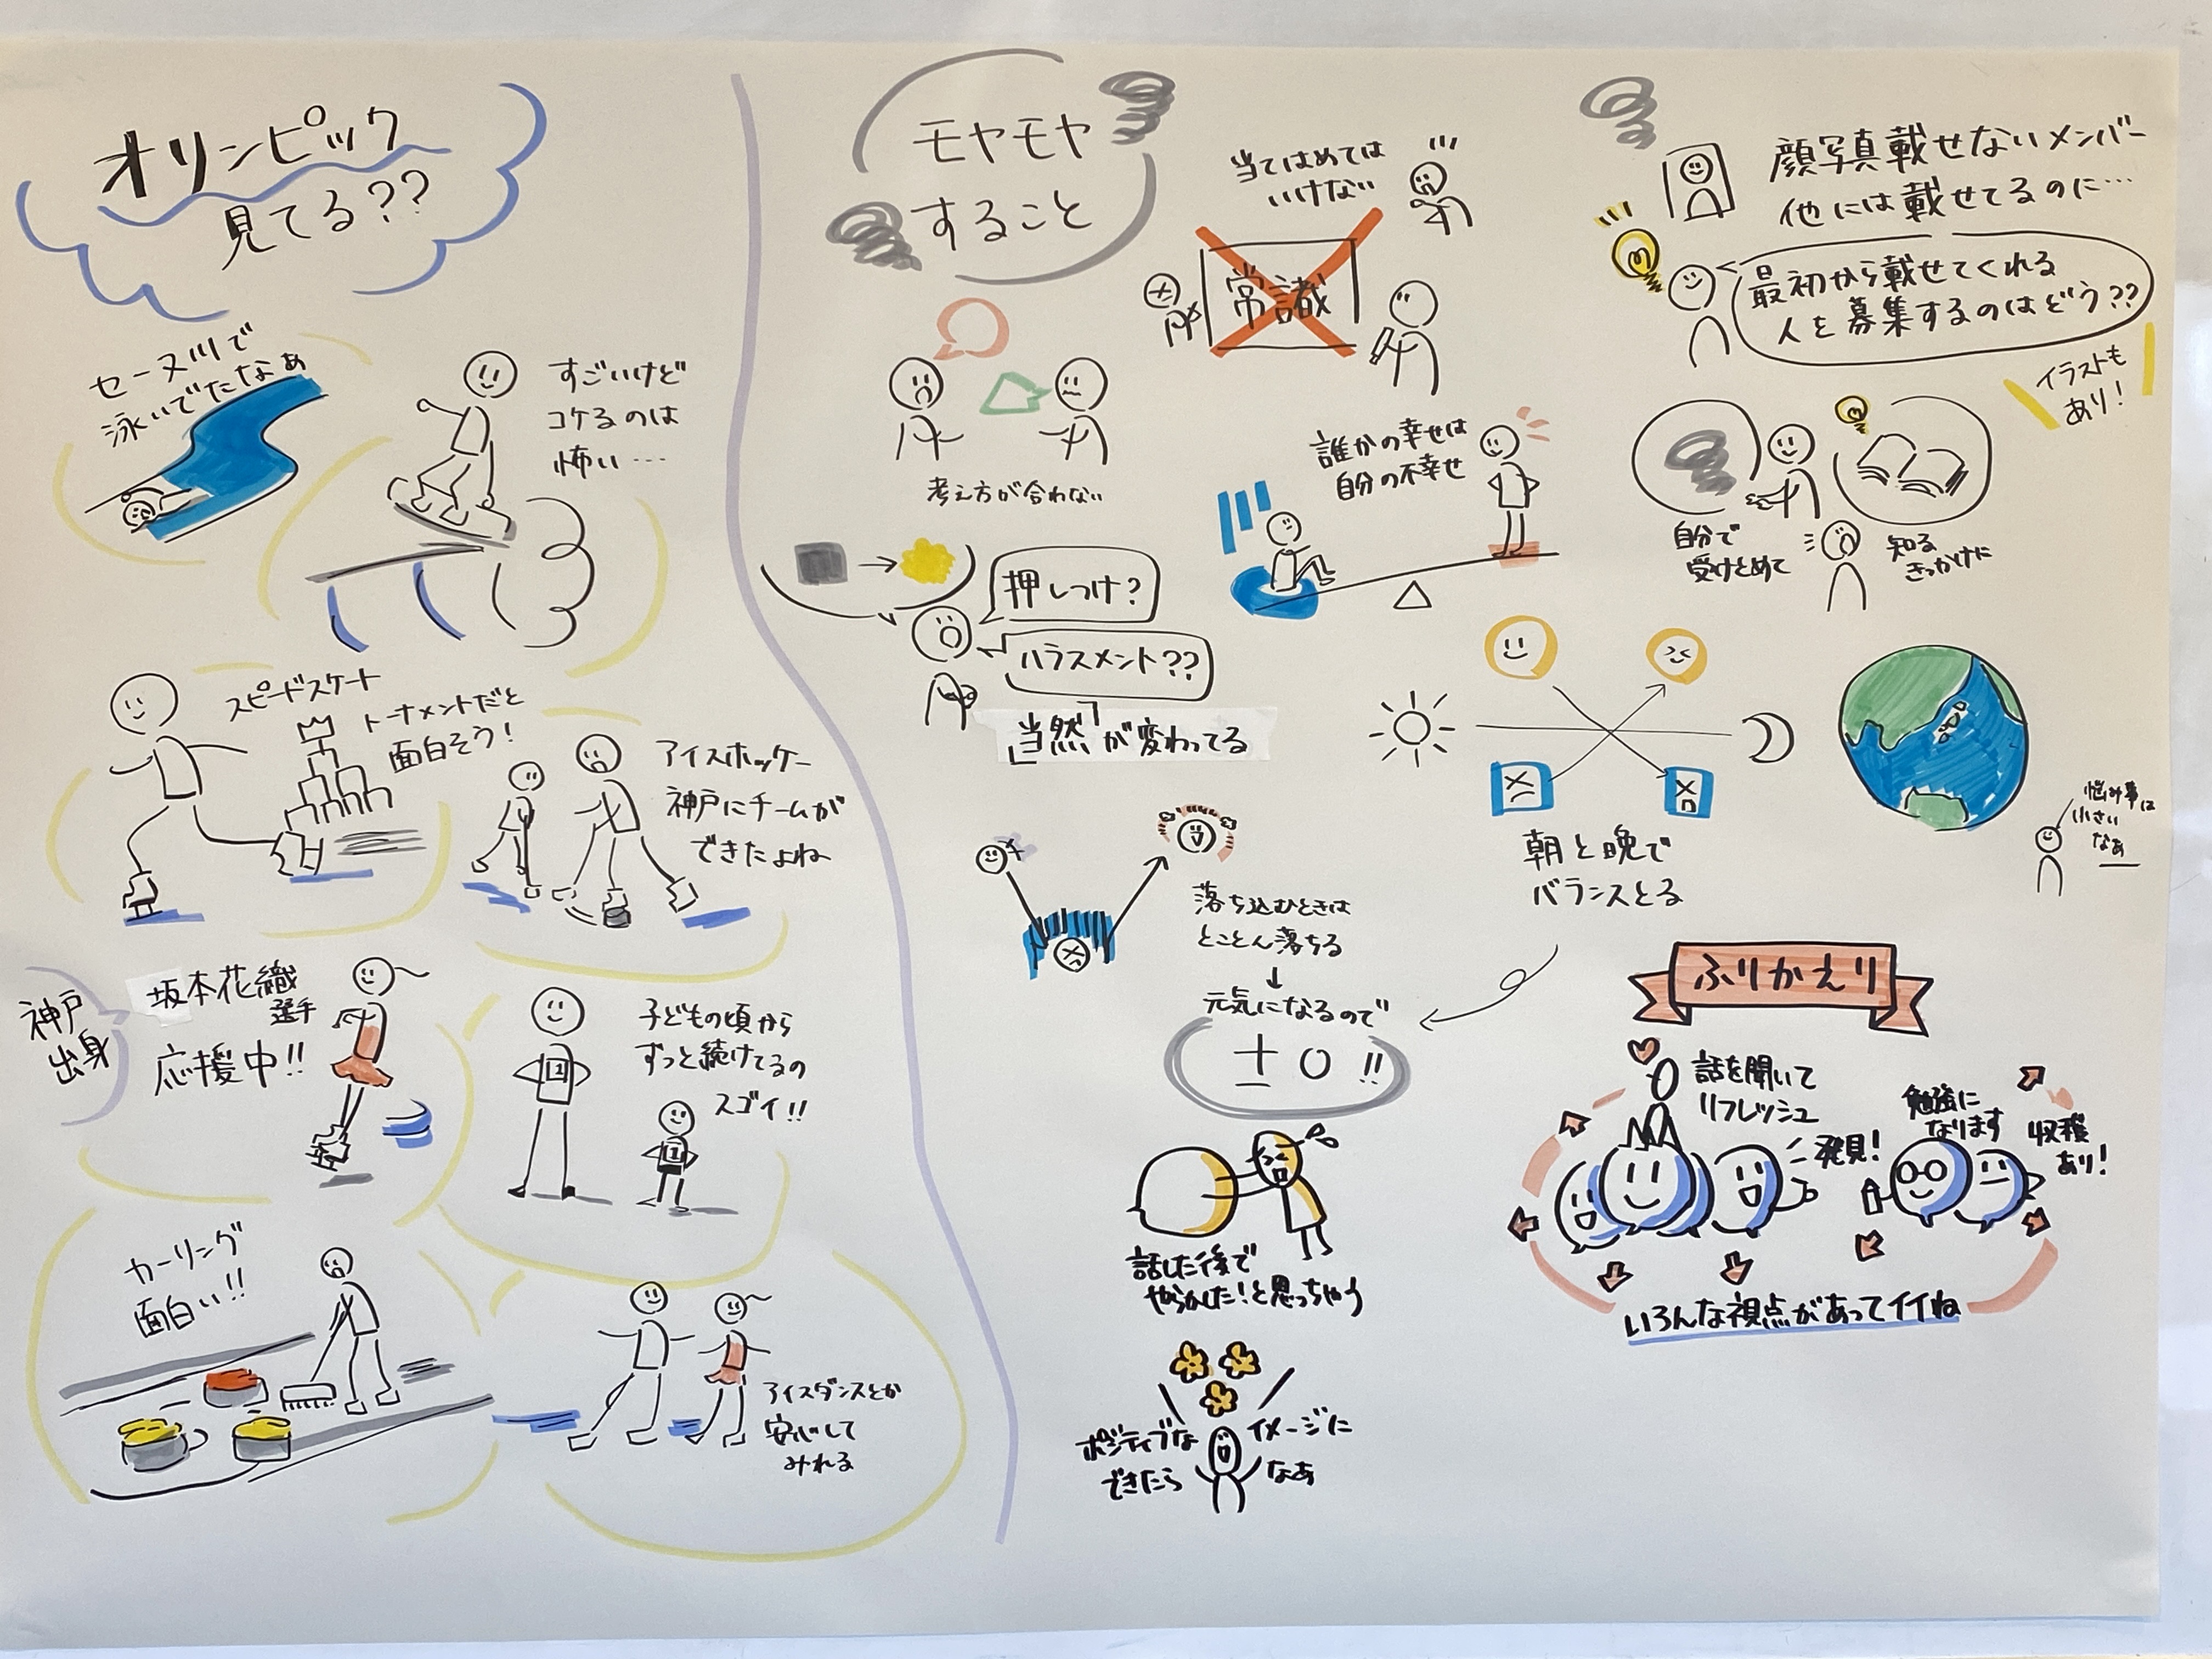 オリンピック
見てる??
セーヌ川で
泳いでたなぁ
すごいけど
コケるのは
怖い…
スピードスケート
トーナメントだと
面白そう!
アイスホッケー
神戸にチームが
できたよね
神戸
出身
坂本花織
選手
応援中!!
子どもの頃から
ずっと続けてるの
スゴイ!!
カーリング
面白い!!
アイスダンスとか
安心して
みれる
モヤモヤ
すること
考え方が合わない
当てはめては
いけない
常識
誰かの幸せは
自分の不幸せ
押しつけ?
ハラスメント??
「当然」が変わってる
顔写真載せないメンバー
他には載せてるのに…
最初から載せてくれる
人を募集するのはどう??
イラストも
あり!
自分で
受けとめて
知る
きっかけに
朝と晩で
バランスとる
悩み事は
小さい
なぁ
落ち込むときは
とことん落ちる
↓
元気になるので
±0!!
話した後で
やらかした!と思っちゃう
ポジティブな イメージに
できたら なあ
ふりかえり
話を聞いて
リフレッシュ
発見!
勉強に
なります
収穫
あり!
いろんな視点があってイイね